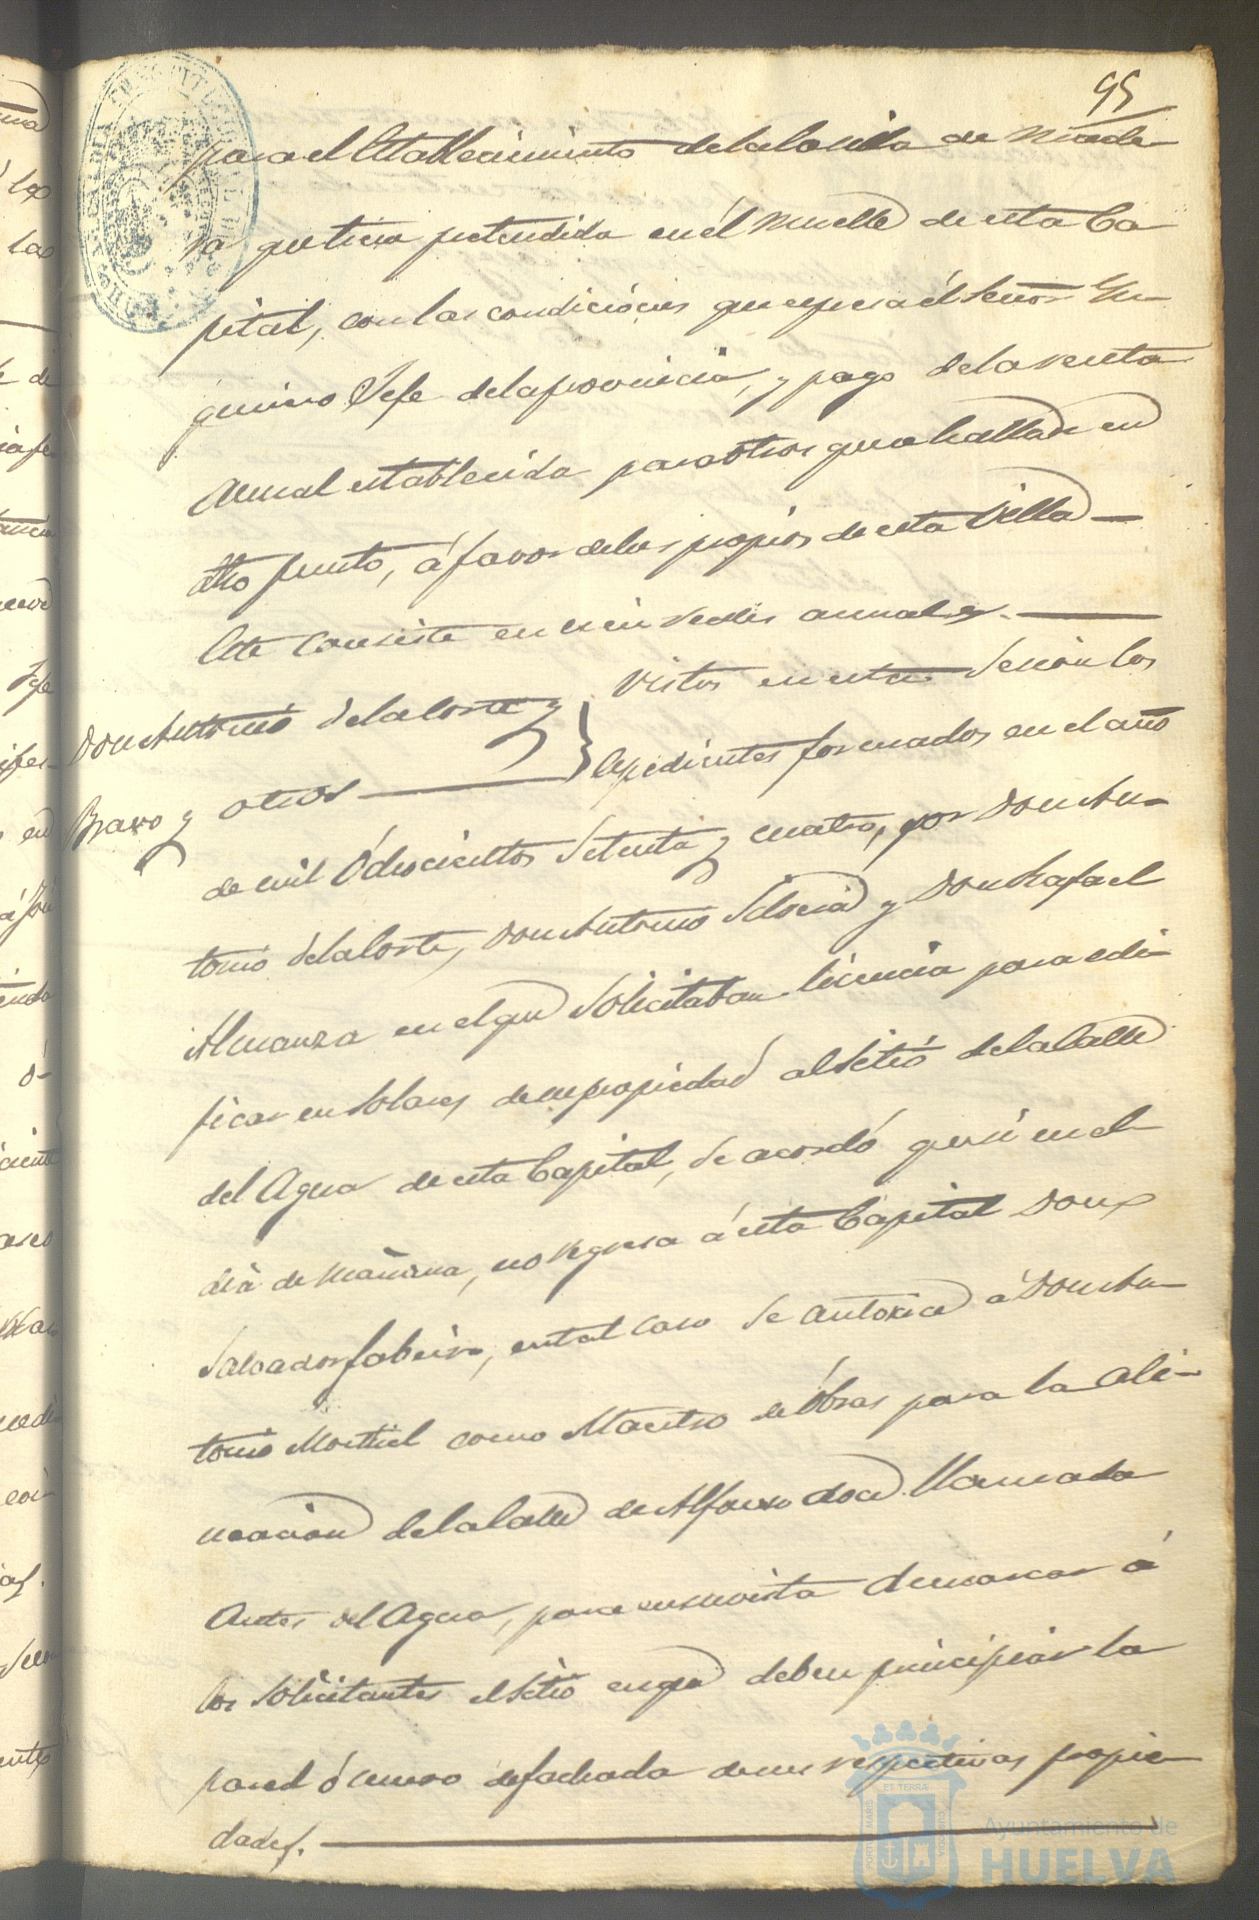 95
para el establecimiento de la Casilla de made-
ra que tiene pretendida en el Muelle de esta Ca
pital, con las condiciones que expresa el Señor Yn-
geniero Jefe de la provincia, y pago de la renta
Anual establecida para otros que se hallan en
dho punto, á favor de los propios de esta Villa
Este Consiste en cien reales annales.
Don Antonio de la Corte y
Bravo y otros
Vistos en esta Sesion los
Expedientes formados en el año
de mil Ochocientos Setenta y cuatro, por Don An-
tonio de la Corte, Don Antonio y Don Rafael
Almanza en el que Solicitaban licencia para edi-
ficar en Solares de su propiedad al Sitió de la Calle
del Agua de esta Capital, Se acordó que si en el
dia de Mañana, no regresa á esta Capital Don
Salvador, en tal caso Se autorice á Don An-
tonio Montiel como Maestro de Obras para la ali-
neacion de la Calle de Alfonso doce llamada
Antes del Agua, para en su vista demarcar á
los Solicitantes el Sitio en que deben principiar la
pared ó muro de fachada de sus respectivas propie-
dades.
Ayuntamiento de
HUELVA